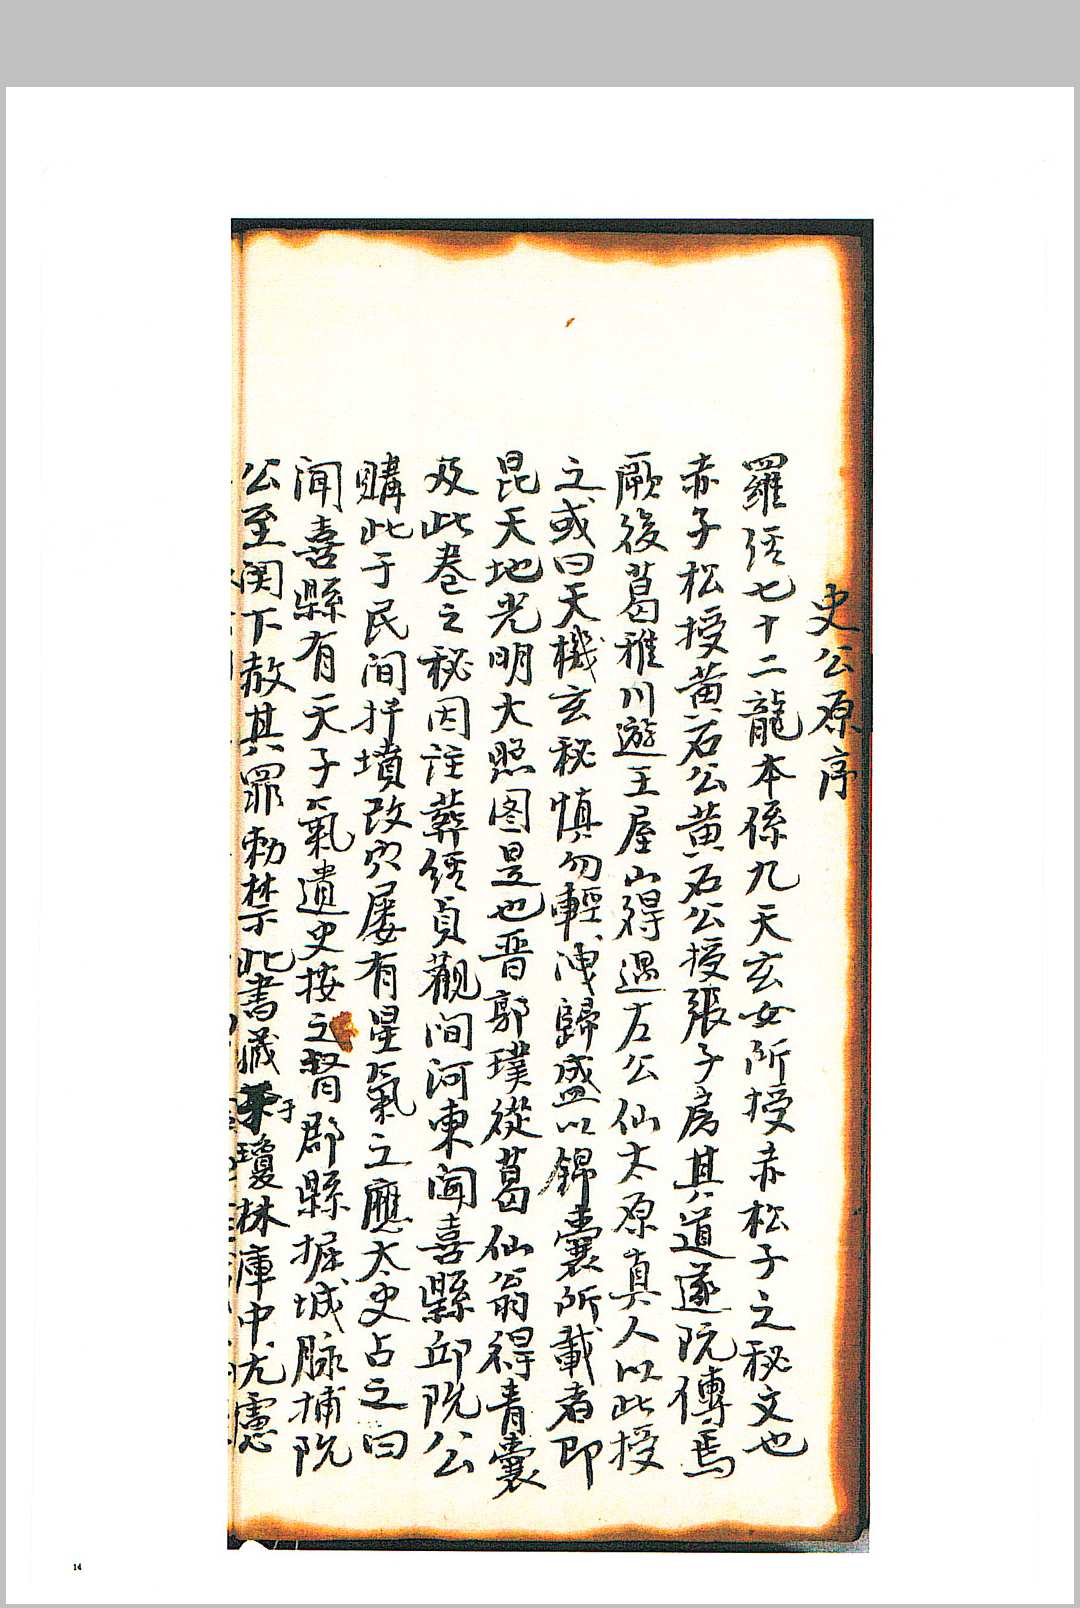 史公原序
羅经七十二龍本係九天玄女所授赤松子之秘文也
赤子松授黄石公黄石公授張子房其道遂阮傳焉
厥後葛稚川遊王屋山得遇左公仙太原真人以此授
之或曰天機玄秘慎勿輕洩歸盛以錦囊所載者即
昆天地光明大照图是也晋郭璞從葛仙翁得青囊
及此卷之秘因註葬经貞觀间河東闻喜縣邱阮公
購此于民间扦墳改穴屡有星氣之應太史占之曰
闻喜縣有天子氣遣史按之督郡縣掘城脉捕阮
公至阙下赦其罪勅禁此書藏于瓊林庫中尤慮
14